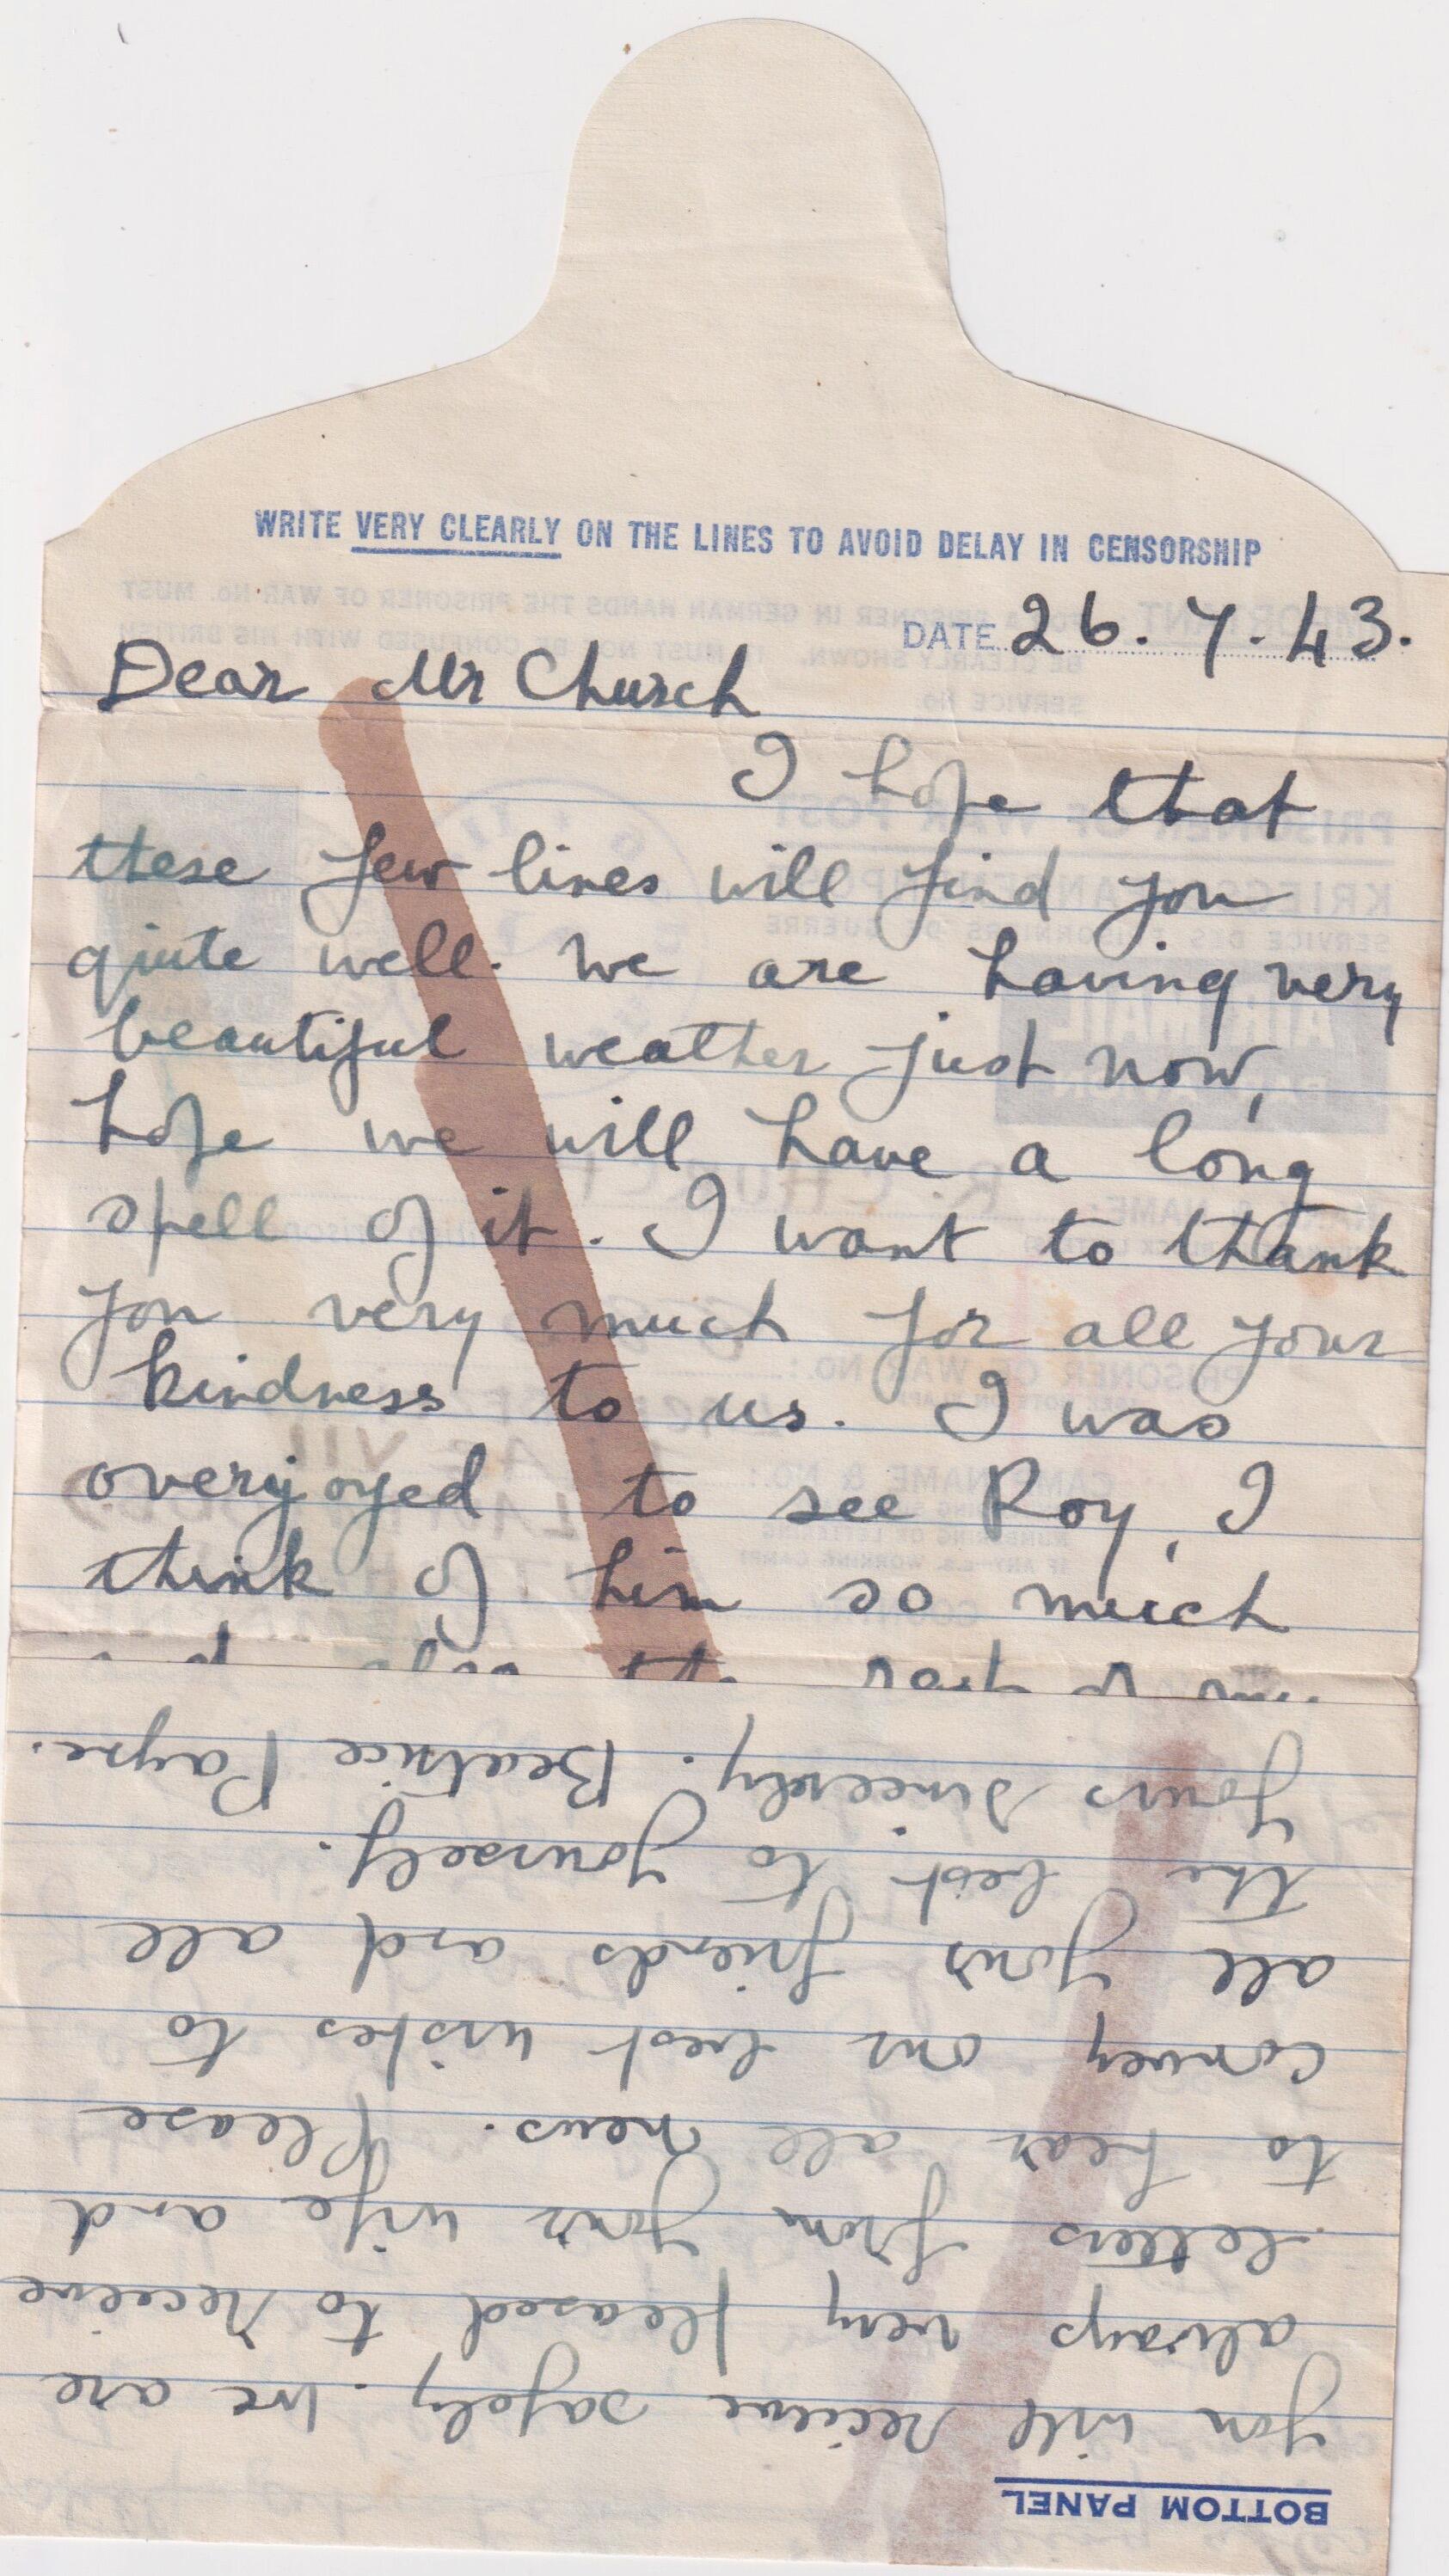 WRITE VERY CLEARLY ON THE LINES TO AVOID DELAY IN CENSORSHIP
DATE 26.7.43.
Dear Mr Church
I hope that
these few lines will find you
qiute well. We are having very
beautiful weather just now,
hope we will have a long
spell of it. I want to thank
you very much for all your
kindness to us. I was
overjoyed to see Roy, I
think of him so much
BOTTOM PANEL
you will recieve safely. We are
always very pleased to receeive
letters from your wife and
to hear all news. Please
convey our best wishes to
all your friends and all
the best to yourself.
Yours sincerely. Beatrice Payne.